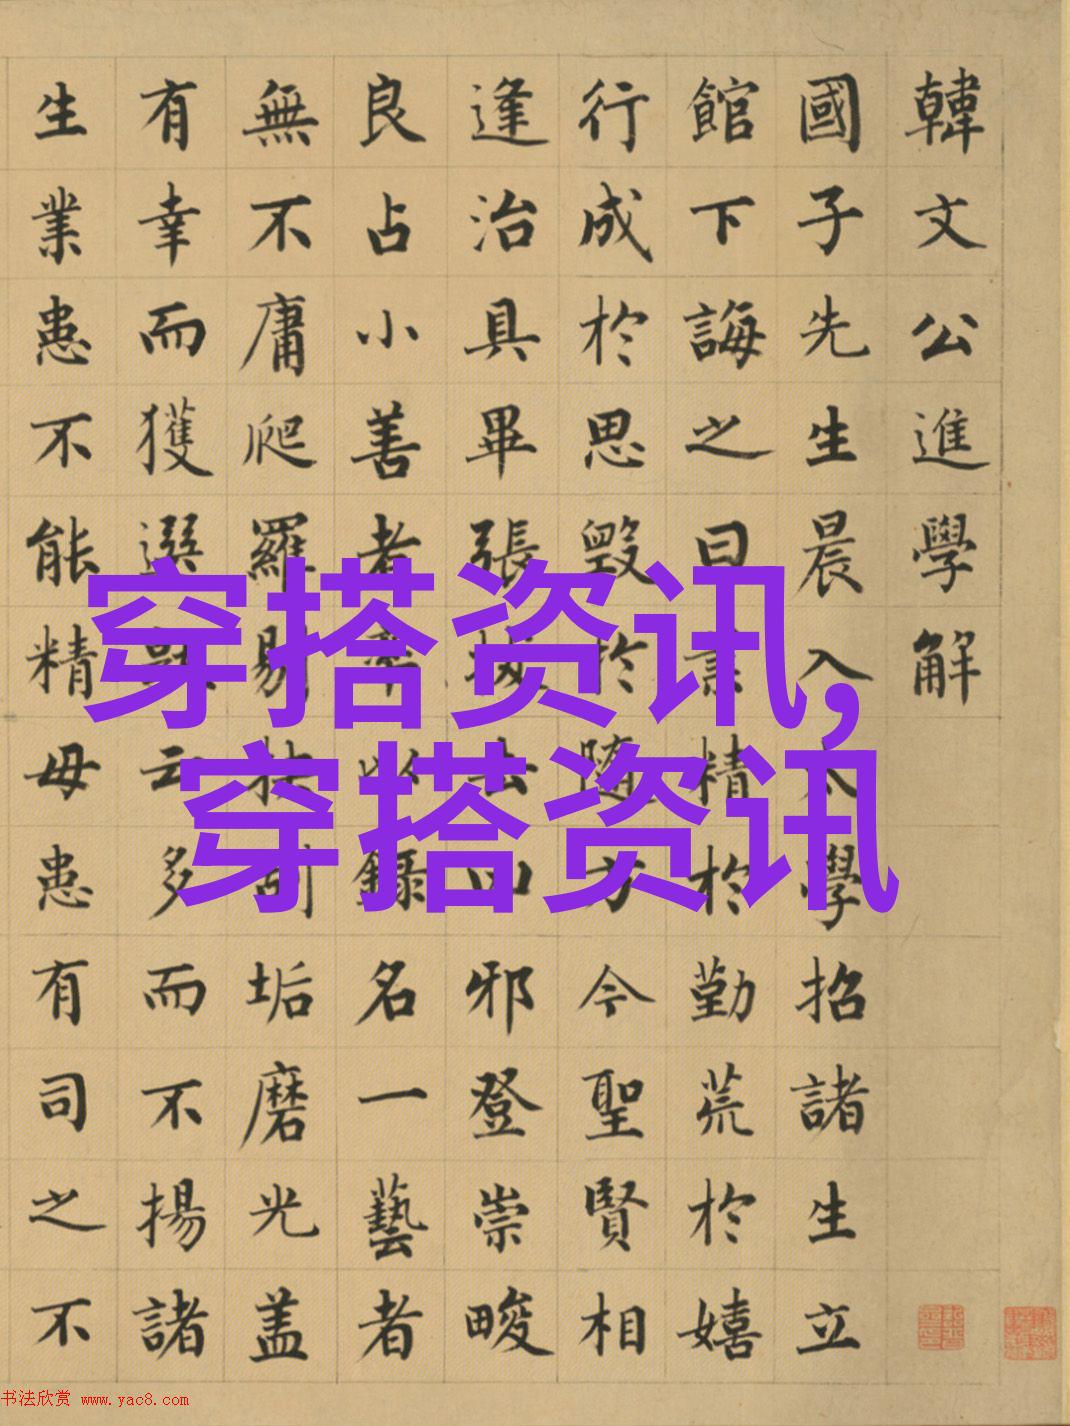 韓文公進學解
國子先生晨入太學招諸生立
館下誨之曰業精於勤荒於嬉
行成於思毀於隨方今聖賢相
逢治具畢張拔去凶邪登崇畯
良占小善者率以錄名一藝者
無不庸爬羅剔抉刮垢磨光盖
有幸而獲選孰云多而不揚諸
生業患不能精毋患有司之不
穿搭资讯,
穿搭资讯
书法欣赏 www.yac8.com